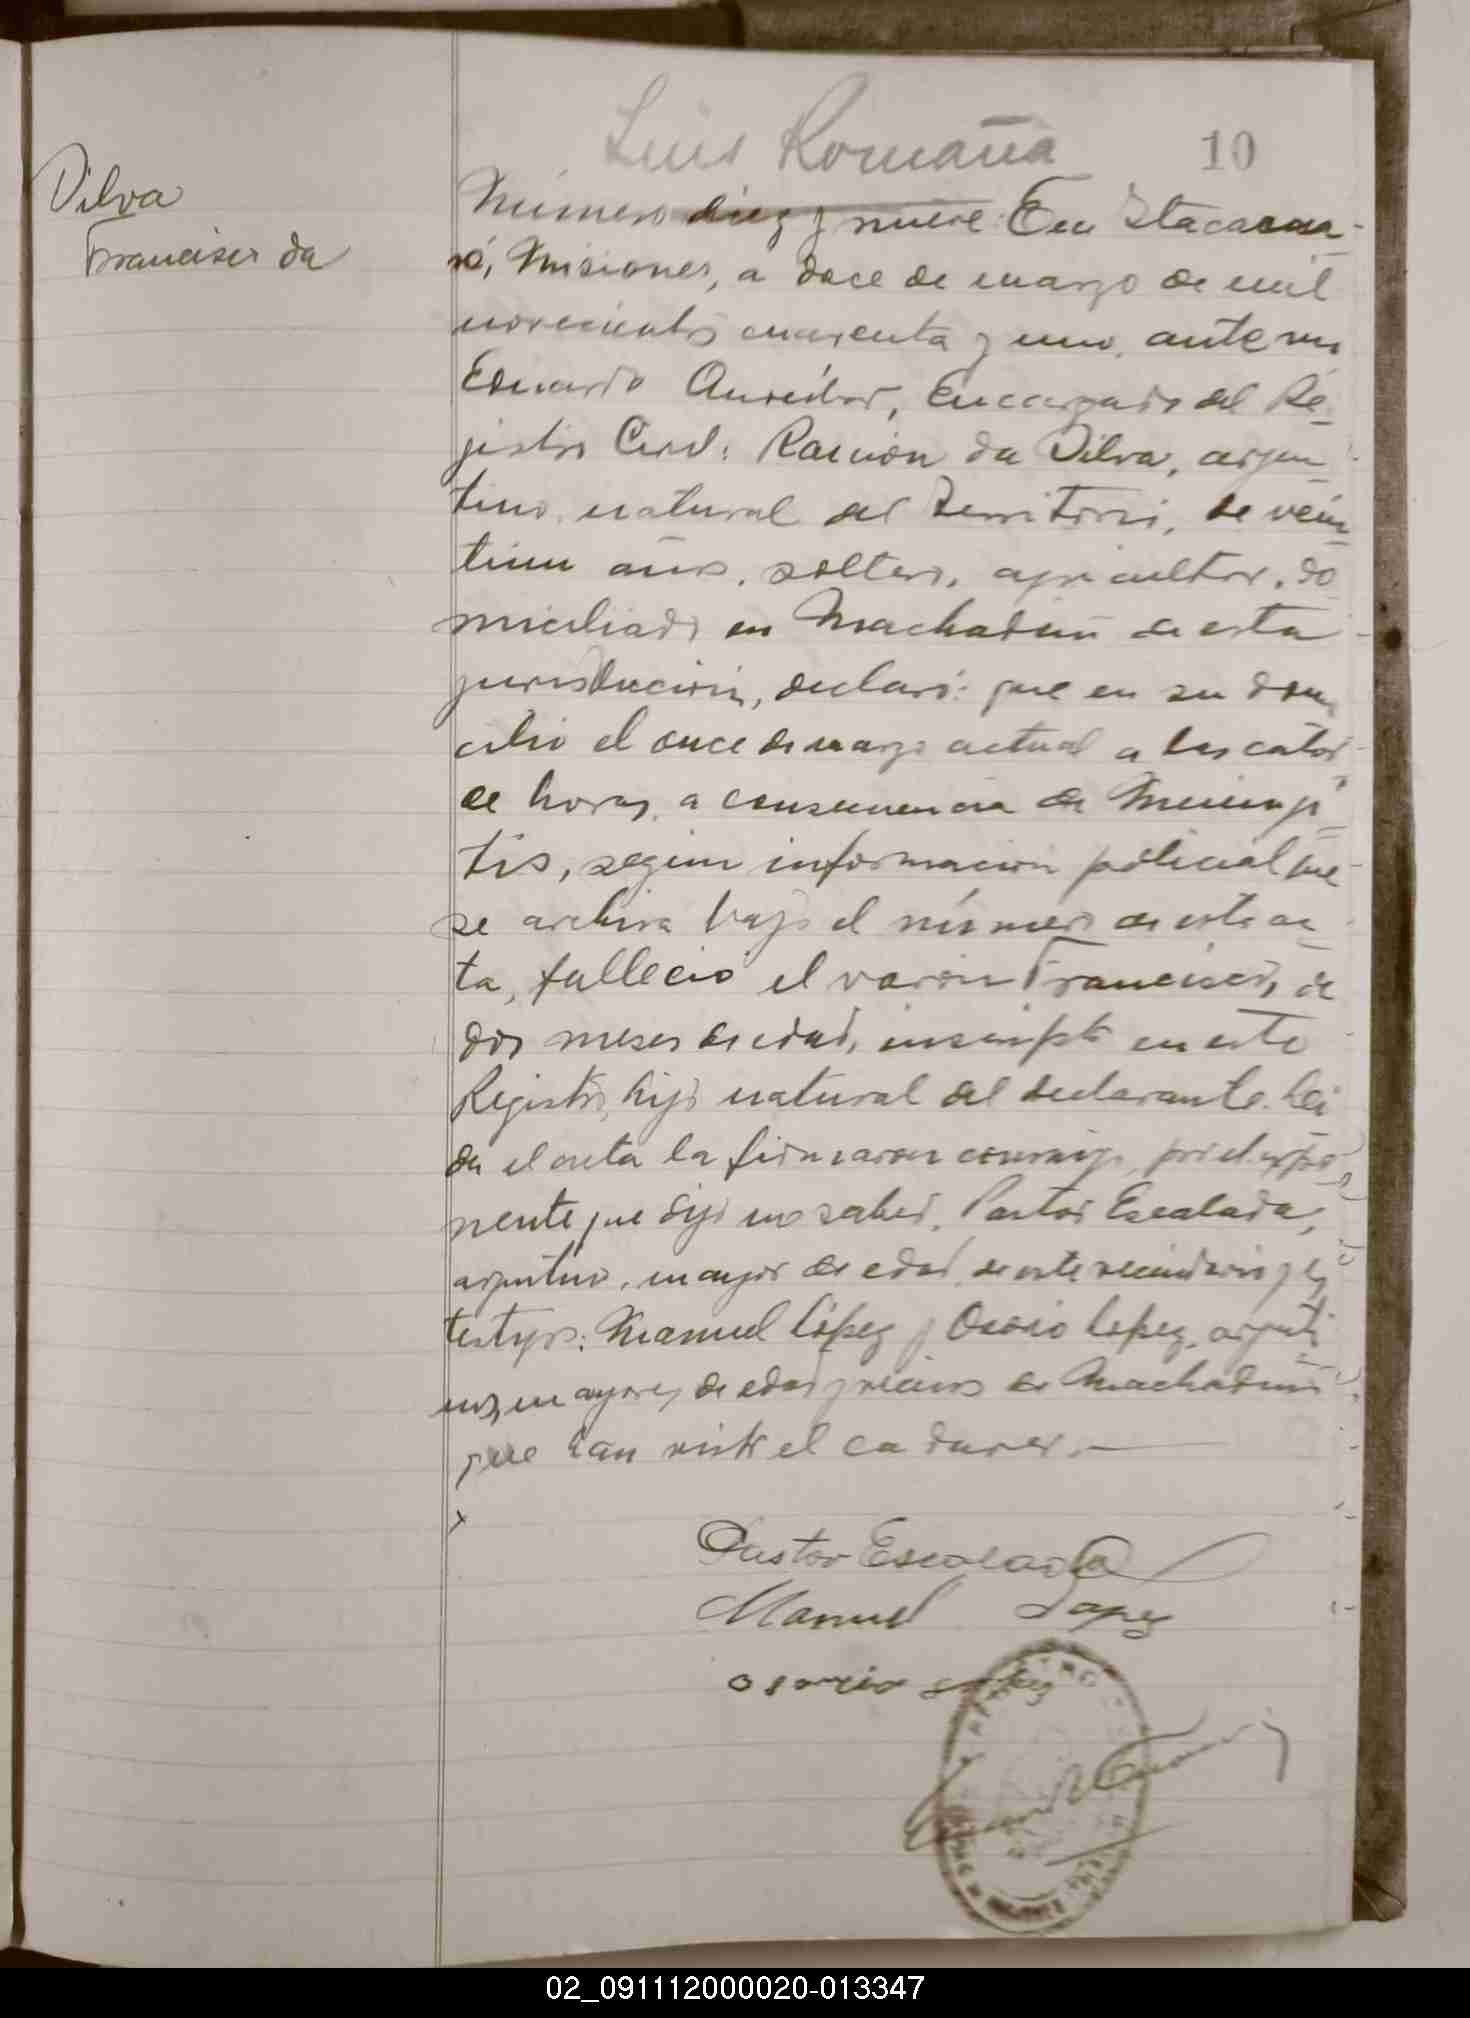 Luis Romaña 10
Silva
Francisco da
Número diez y nueve. En Itacarua-
ré, Misiones, a doce de marzo de mil
novecientos cuarenta y uno, ante mi
Eduardo, Encargado del Re-
gistro Civil: Ramón da Silva, argen-
tino, natural del Territorio, de vein-
tiun años, soltero, agricultor, do-
miciliado en Machadiño de esta
jurisdiccion, declaró: que en su domi-
cilio el once de marzo actual a las cator-
ce horas, a consecuencia de Meningi-
tis, segun informacion policial que
se archiva bajo el número de esta ac-
ta, fallecio el varón Francisco, de
dos meses de edad, inscripto en este
Registro, hijo natural del declarante. Lei-
da el acta la firmaron conmigo, por el expo-
nente que dijo no saber, Pastor Escalada,
argentino, mayor de edad, de este vecindario y los
testigos: Manuel López y Osorio Lopez, argenti-
nos, mayores de edad y vecinos de Machadiño
que han visto el cadaver.—
Pastor Escalada
Manuel Lopez
osorio Lopez
02_091112000020-013347